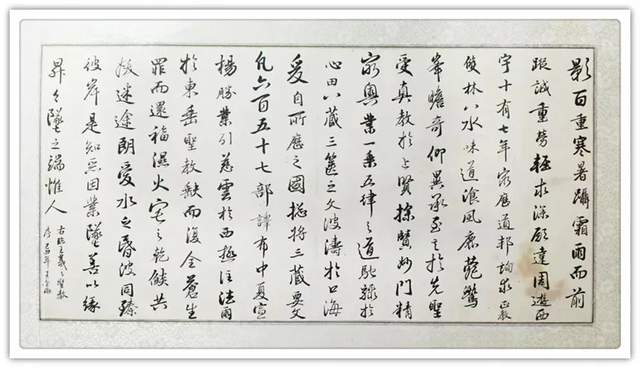 影百重寒暑躡霜雨而前
蹤誠重勞輕求深願達周遊西
宇十有七年窮歷道邦詢求正教
雙林八水味道飡風鹿菀鷲
峯瞻奇仰異承至言於先聖
受真教於上賢探賾妙門精
窮奧業一乘五律之道馳驟於
心田八藏三篋之文波濤於口海
爰自所歷之國摠將三藏要文
凡六百五十七部譯布中夏宣
揚勝業引慈雲於西極注法雨
於東垂聖教缺而復全蒼生
罪而還福濕火宅之乾燄共
拔迷途朗愛水之昏波同臻
彼岸是知惡因業墜善以緣
昇々墜之端惟人
右臨王羲之聖教
序